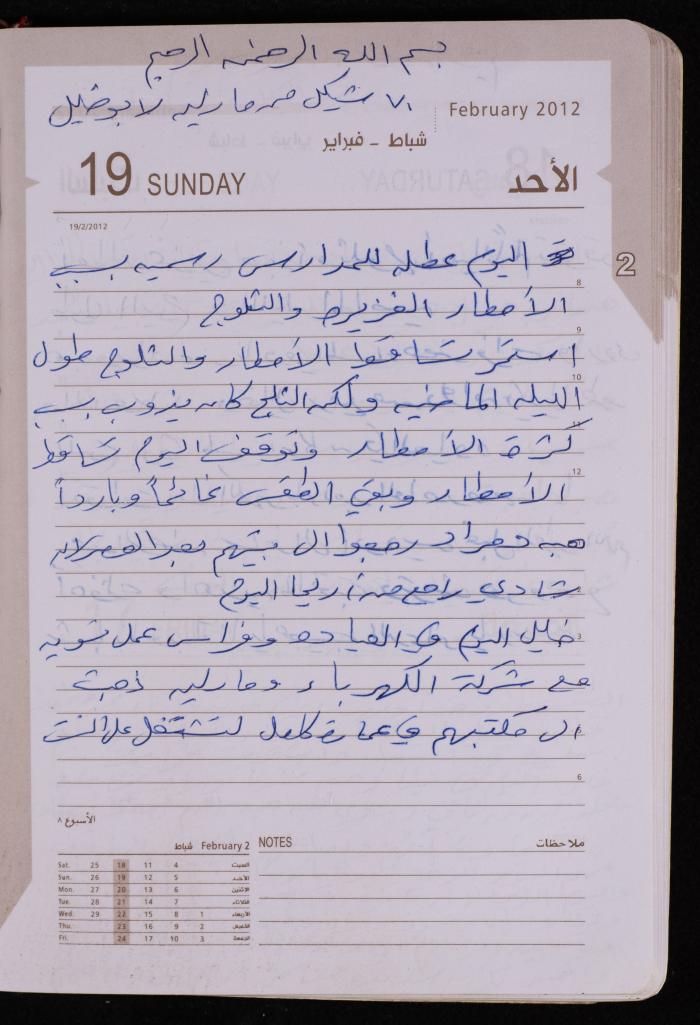 بسم الله الرحمن الرحيم
١٧ شيكل من مارليه لابو خليل
February 2012
شباط - فبراير
19 SUNDAY
الأحد
19/2/2012
2
اليوم عطله للمدارس رسميه بسبب
الأمطار الغزيره والثلوج
استمر تساقط الأمطار والثلوج طول
الليله الماضيه ولكن الثلج كان يذوب بسبب
كثرة الأمطار وتوقف اليوم تساقط
الأمطار وبقي الطقس غائماً وبارداً
هبه ومراد رجعوا الى بيتهم بعد العصر لان
شادي راجع من أريحا اليوم
خليل اليوم في العياده وفراس عمل تسويه
مع شركة الكهرباء ومارليه ذهبت
الى مكتبهم في عمارة كامل لتشتغل على النت
8
9
10
11
12
2
3
5
6
الأسبوع ٨
شباط February 2
Sat. 25 18 11 4 السبت
Sun. 26 19 12 5 الأحد
Mon. 27 20 13 6 الاثنين
Tue. 28 21 14 7 الثلاثاء
Wed. 29 22 15 8 1 الأربعاء
Thu. 23 16 9 2 الخميس
Fri. 24 17 10 3 الجمعة
NOTES ملاحظات